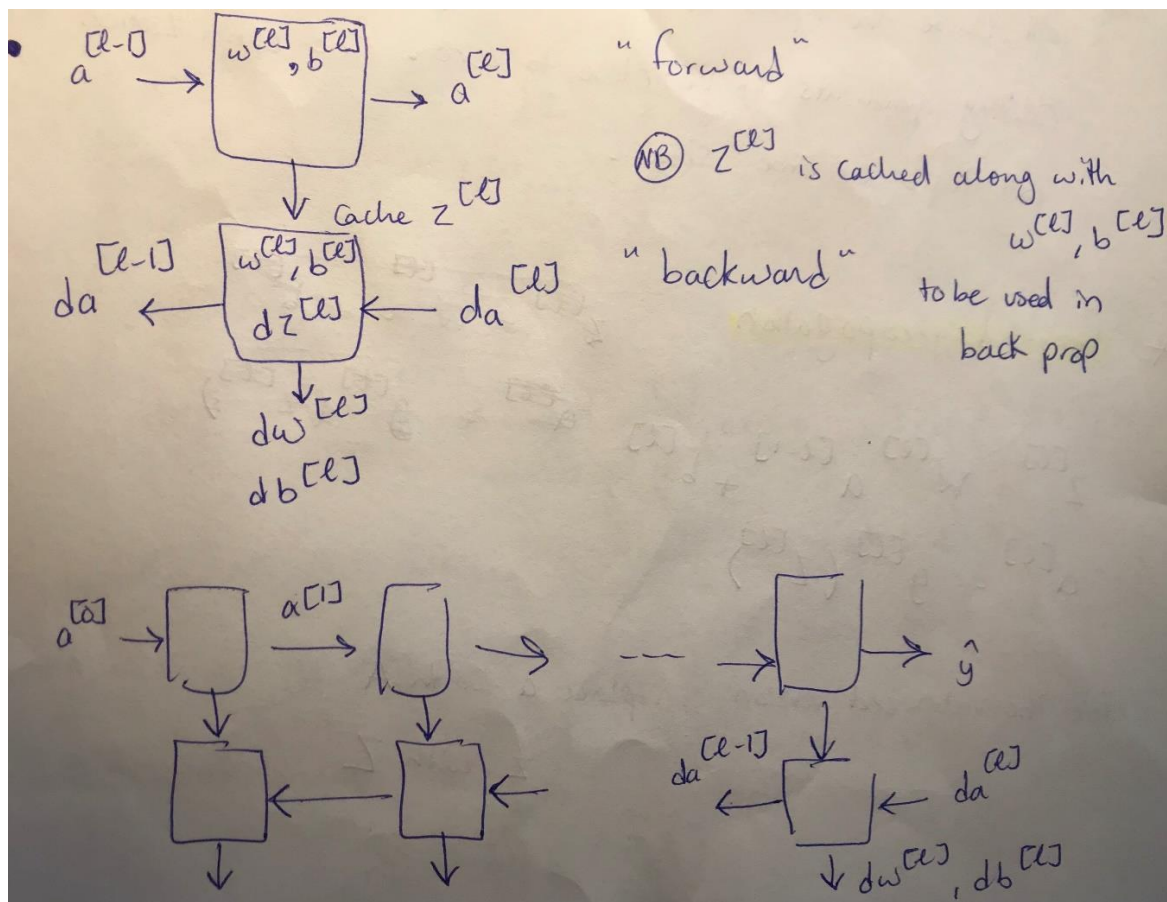 a^[l-1]
w^[l], b^[l]
a^[l]
"forward"
NB z^[l] is cached along with
w^[l], b^[l]
to be used in
back prop
cache z^[l]
da^[l-1]
w^[l], b^[l]
dz^[l]
da^[l]
"backward"
dw^[l]
db^[l]
a^[0]
a^[1]
----
ŷ
da^[l-1]
da^[l]
dw^[l], db^[l]